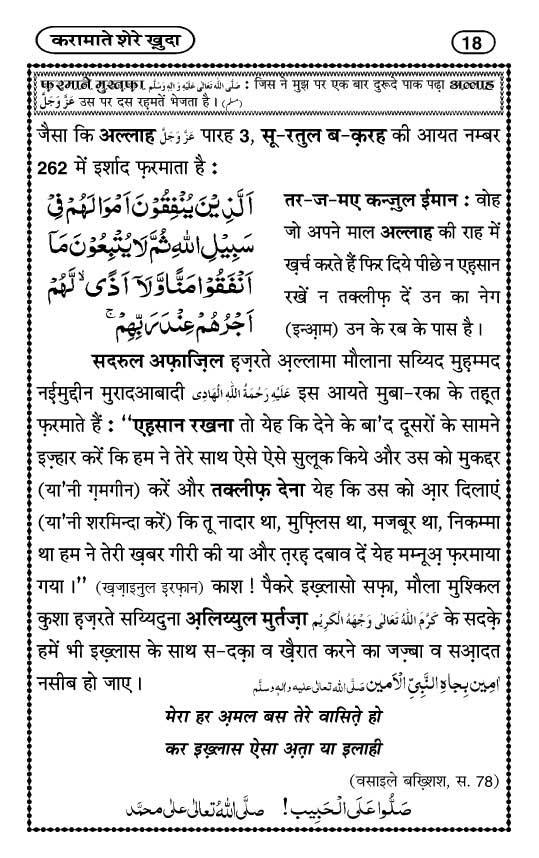 करामाते शेरे ख़ुदा
18
फ़रमाने मुस्त़फ़ा صَلَّى اللهُ تَعَالٰى عَلَيْهِ وَاٰلِهٖ وَسَلَّم : जिस ने मुझ पर एक बार दुरूदे पाक पढ़ा अल्लाह
عَزَّوَجَلَّ उस पर दस रहमतें भेजता है। (مسلم)
जैसा कि अल्लाह عَزَّوَجَلَّ पारह 3, सू-रतुल ब-क़रह की आयत नम्बर
262 में इर्शाद फ़रमाता है :
اَلَّذِیْنَ یُنْفِقُوْنَ اَمْوَالَهُمْ فِیْ
سَبِیْلِ اللّٰهِ ثُمَّ لَا یُتْبِعُوْنَ مَاۤ
اَنْفَقُوْا مَنًّا وَّ لَاۤ اَذًىۙ لَّهُمْ
اَجْرُهُمْ عِنْدَ رَبِّهِمْۚ
तर-ज-मए कन्ज़ुल ईमान : वोह
जो अपने माल अल्लाह की राह में
ख़र्च करते हैं फिर दिये पीछे न एह़सान
रखें न तक्लीफ़ दें उन का नेग
(इन्आ़म) उन के रब के पास है।
सदरुल अफ़ाज़िल ह़ज़रते अ़ल्लामा मौलाना सय्यिद मुह़म्मद
नईमुद्दीन मुरादआबादी عَلَيْهِ رَحْمَةُ اللهِ الْهَادِى इस आयते मुबा-रका के तह़्त
फ़रमाते हैं : ‘‘एह़सान रखना तो येह कि देने के बा'द दूसरों के सामने
इज़्हार करें कि हम ने तेरे साथ ऐसे ऐसे सुलूक किये और उस को मुकद्दर
(या'नी ग़मगीन) करें और तक्लीफ़ देना येह कि उस को आ़र दिलाएं
(या'नी शरमिन्दा करें) कि तू नादार था, मुफ़्लिस था, मजबूर था, निकम्मा
था हम ने तेरी ख़बर गीरी की या और त़रह़ दबाव दें येह मम्नूअ़ फ़रमाया
गया।’’ (ख़ज़ाइनुल इरफ़ान) काश ! पैकरे इख़्लासो सफ़ा, मौला मुश्किल
कुशा ह़ज़रते सय्यिदुना अ़लिय्युल मुर्तज़ा كَرَّمَ اللهُ تَعَالٰى وَجْهَهُ الْكَرِيْم के सदक़े
हमें भी इख़्लास के साथ स-दक़ा व ख़ैरात करने का जज़्बा व सआ़दत
नसीब हो जाए। اٰمِيْن بِجَاهِ النَّبِيِّ الْاَمِيْن صَلَّى اللهُ تعالٰى عليه واٰله وسلَّم
मेरा हर अ़मल बस तेरे वासित़े हो
कर इख़्लास ऐसा अ़त़ा या इलाही
(वसाइले बख़्शिश, स. 78)
صَلُّوا عَلَى الْحَبِيب! صلَّى اللهُ تعالٰى علٰى محمَّد